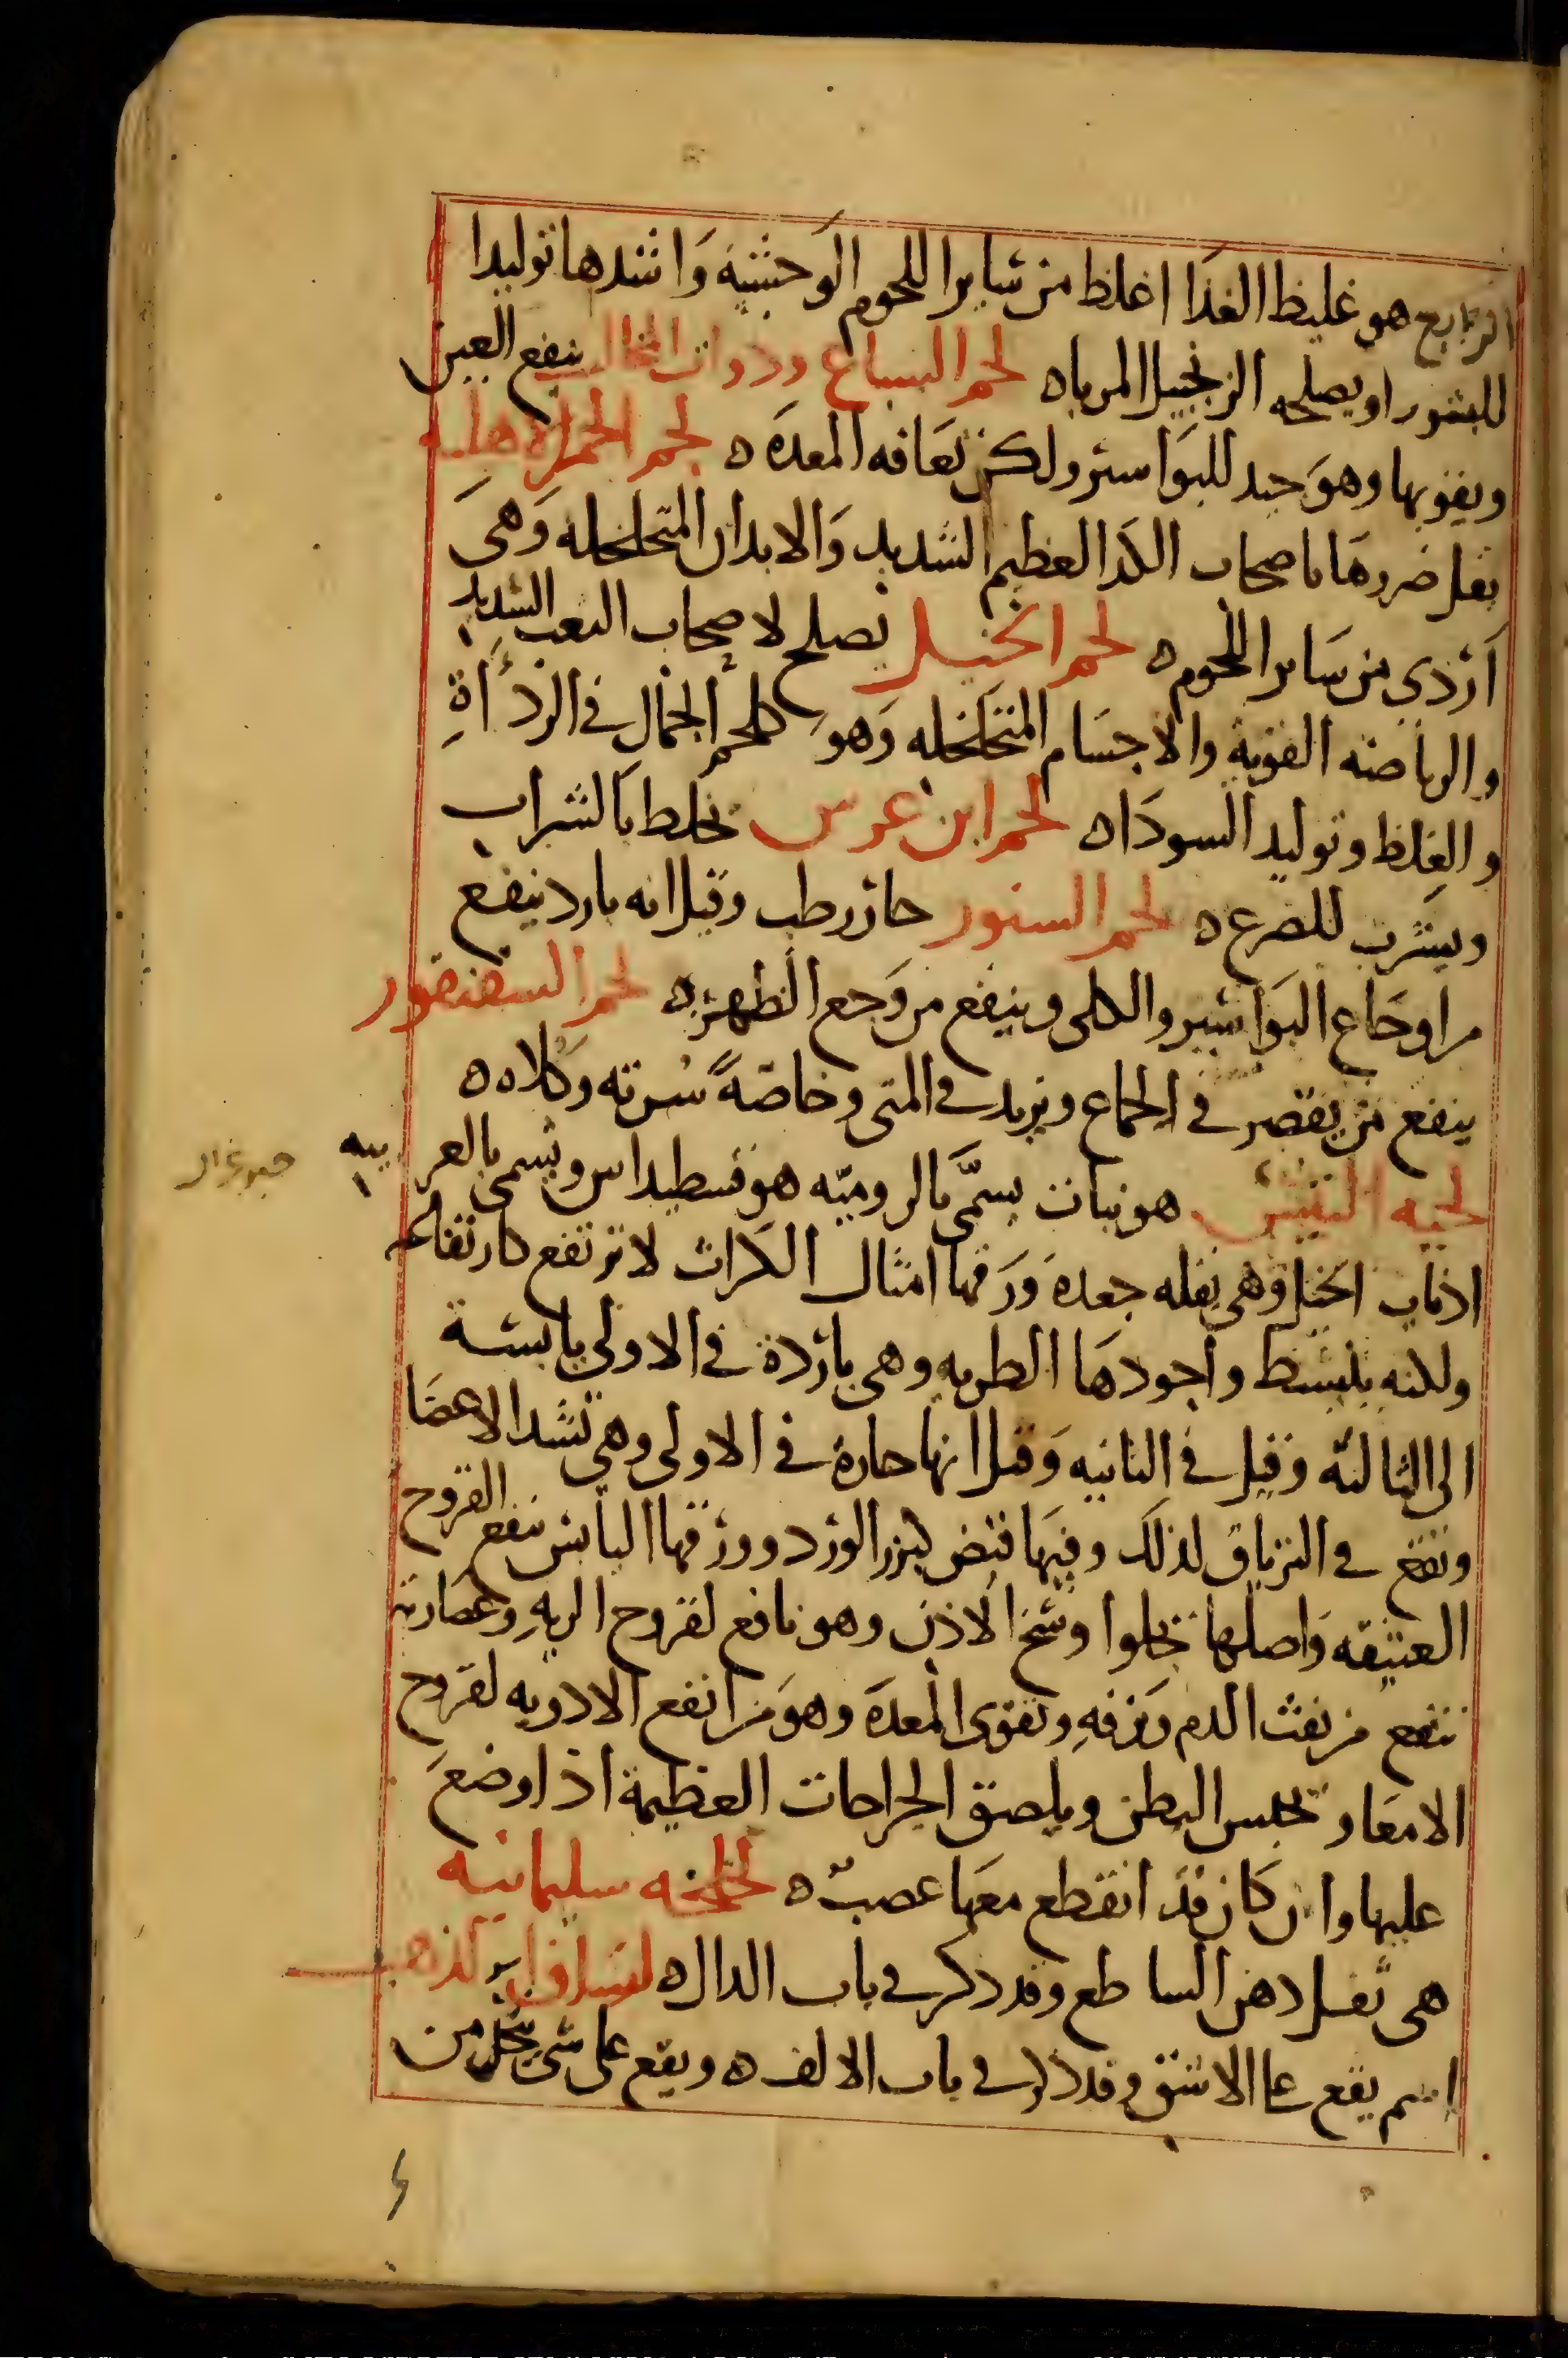 الرابع هو غليظ الغذا اغلظ من ساير اللحوم الوحشية وَاشدها توليدا
للسودا ويصلحه الزنجبيل المرباه لحم السباع وذوات المخالب ينفع العين
ويقويها وهوَ جيد للبوَاسير ولكن تعَافه المعدَه ه لحم الحمر الاهليه
يقل ضررهَا باصحاب الكد العظيم الشديد وَالابدان المتخلخله وَهىَ
اَردى من سَاير اللحوم ه لحم الخيل يصلح لاصحاب التعب الشديد
والرياضه القوية والاجسَام المتخَلخله وَهوَ كلحم الجمال في الردأَةِ
والغِلظ وتوليد السودَاه لحم ابن عرس يخلط بَالشراب
ويشرَب للصرع ه لحم السنور حار رطب وقيل انه بارد ينفع
من اوجَاع البوَاسير والكلى وينفع من وَجع الظهر ه لحم السقنقور
ينفع من يقصر في الجماع ويزيد في المنى وخاصّةً سُرته وَكُلاه ه
لحيه التيس هو نبات يسمَّى بَالروميّه هوفسطيداس ويسمى بالعربيه
اذناب الخيل وَهى بقله جعدَه وَرَقها امثال الكراث لا ترتفع كارتفاعه
ولكنه ينبسَط وأجودهَا الطريه وهى بَاردة في الاولى يابسة
الى الثالثه وَقيل في الثانيه وَقيل انها حارة في الاولى وهى تشد الاعضَا
وتقع في الترياق لذلك وفيهَا قبض كبزر الورد وورقها اليابس ينفع القروح
العتيقه وَاصلها يجلوا وسَخ الاذن وهو نافع لقروح الريهِ وعصَارته
تنفع من نفث الدم وَنزفهِ وتقوى المعدَه وهوَ من انفع الادويه لقروح
الامعَا وتحبس البطن ويلصق الجراحات العظيمة اذا وضعَ
عليها وان كان قدَ انقطع معهَا عصب ه لخلخه سليمانيه
هى ثفل دهن الساطع وقد ذكر في باب الدال ه لزاق الذهب
اسم يقع على الاشق وقد ذكر في باب الالف ه ويقع على شى يتخذ من